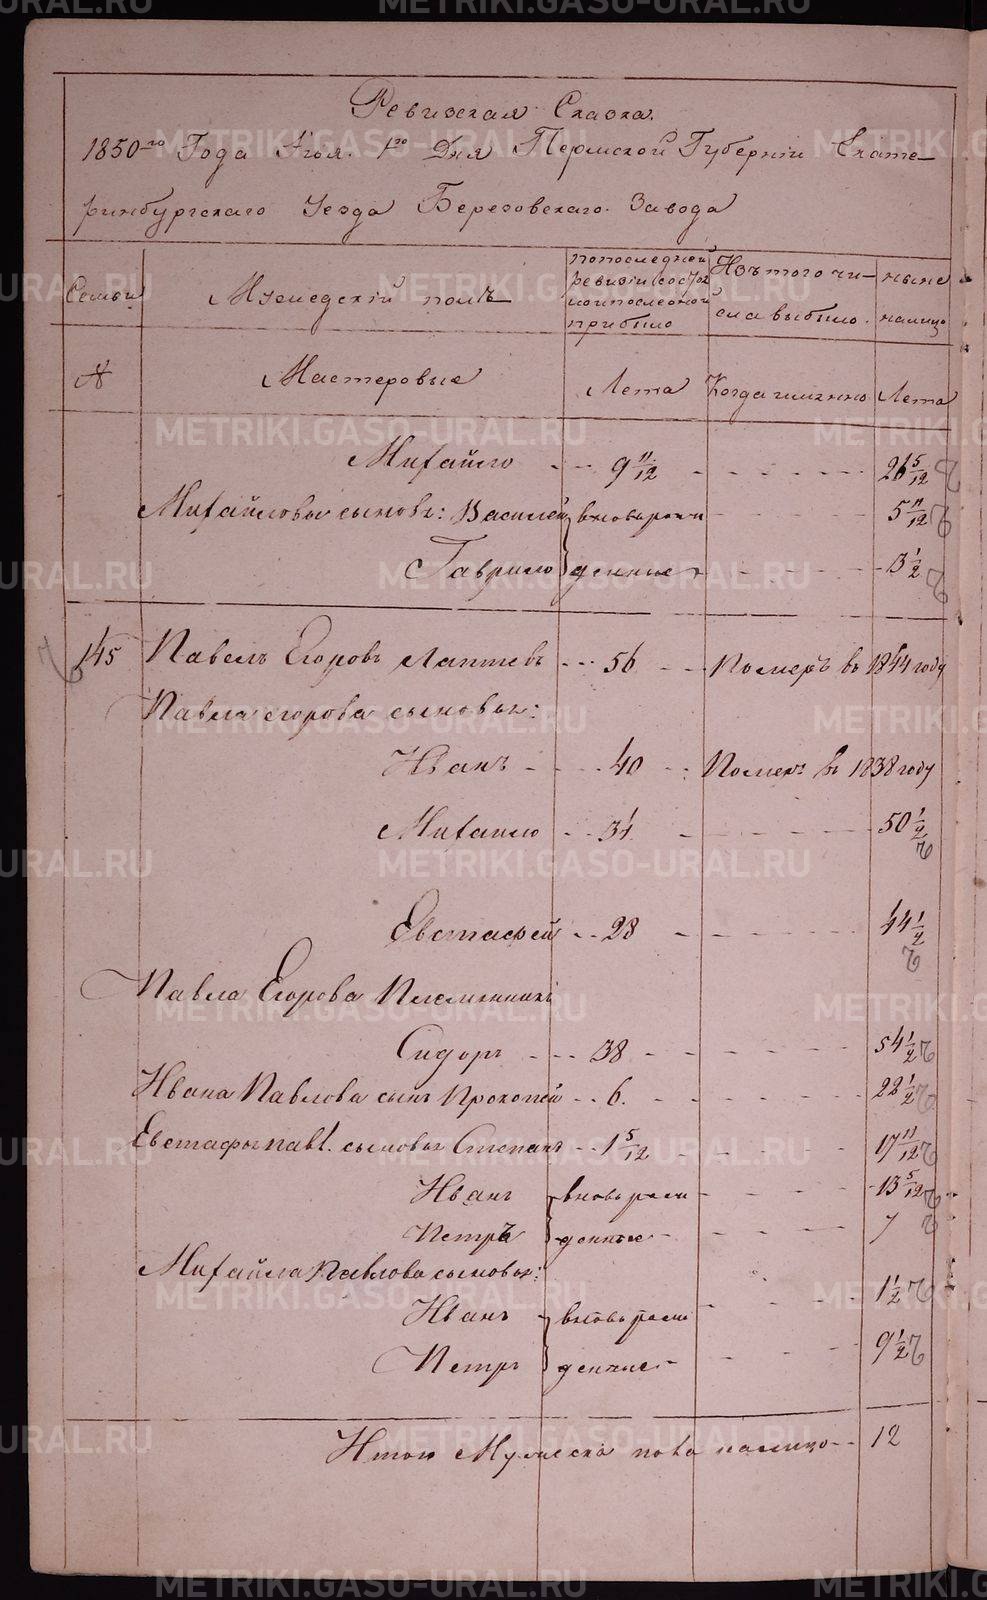 Ревизская Сказка.
1850-го Года Июля. 1го Дня Пермской Губернiи Екате-
ринбургскаго Уезда Березовскаго Завода
Семьи
Мужедскiй полъ
попоследной
ревизiи состоя
прибыло
Изъ того чи-
сла выбыло.
ныне
налицо
№
Мастеровые
Лета
Когда имянно
Лета
Михайло - - - 9 11/12 - - - - - 26 5/12
Михайловы сыновья: Василей вновь рожи - - - - 5 11/12
Гаврило денные - - - - - 3 1/2
145 Павелъ Егоровъ Лаптевъ - - - 56 - - Померъ въ 1844 году
Павла Егорова сыновья:
Иванъ - - - - 40 - - Померъ въ 1838 году
Михайло - - 34 - - - - - 50 1/2
Евстафей - - 28 - - - - - 44 1/2
Павла Егорова Племянникъ
Сидоръ - - - 38 - - - - - 54 1/2
Ивана Павлова сынъ Прокопей - - 6. - - - - - 22 1/2
Евстафья Павл. сыновья Степанъ - - 1 5/12 - - - - - 17 11/12
Иванъ вновь рож - - - - - 13 5/12
Петръ денные - - - - - 7
Михайла Павлова сыновья:
Иванъ вновь рож - - - - 1 1/2
Петръ денные - - - - - 9 1/2
Итого Мужеска пола налицо - - 12
METRIKI.GASO-URAL.RU